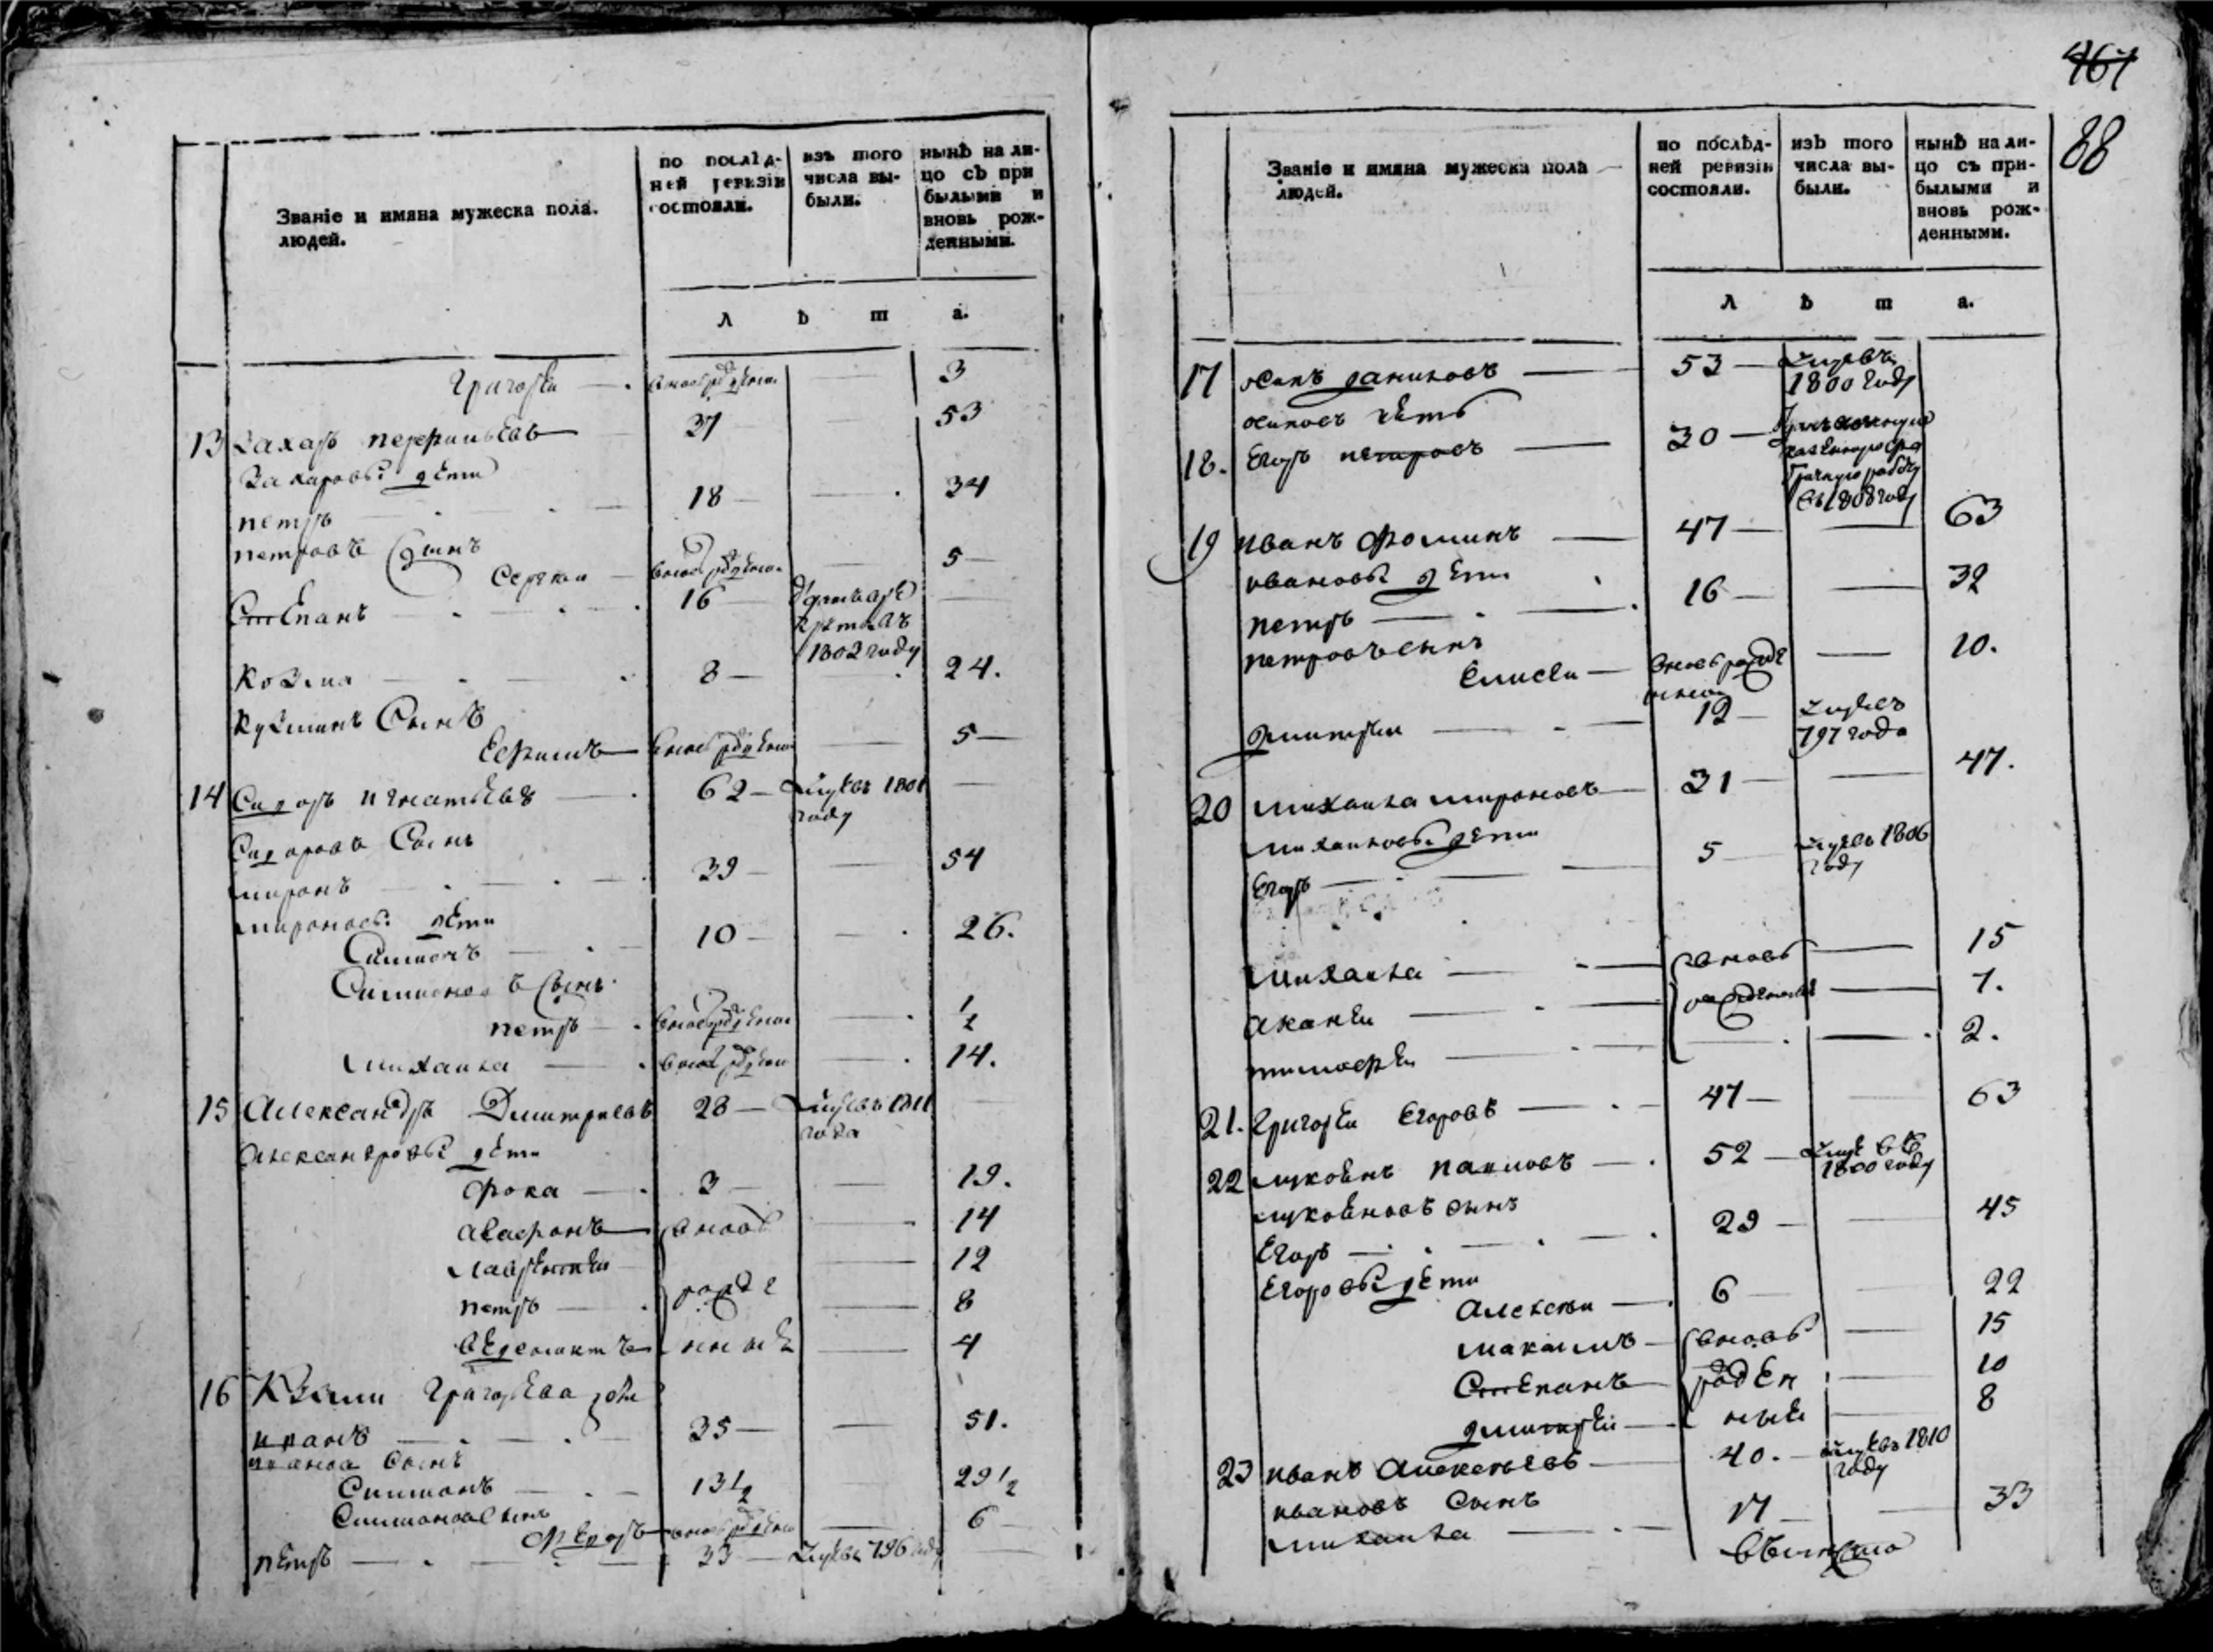 467
88
Званіе и имяна мужеска пола.
людей.
по послѣд-
ней ревизіи
состояли.
изъ того
числа вы-
были.
нынѣ на ли-
цо съ при
былыми и
вновь рож-
денными.
л ѣ т а.
Григорѣи вновьрожденъ 3
13 Захаръ перфильевъ 37 53
Захаровы дѣти
петръ 18 34
петровъ сынъ
Сергѣи вновьрожденъ 5
Степанъ 16
1802 году
Козма 8 24.
Кузминъ Сынъ
Ефимъ вновьрожденъ 5
14 Сидоръ игнатьевъ 62 умре въ 1801
году
Сидоровъ Сынъ
миронъ 39 54
мироновы дѣти
Симионъ 10 26.
Симионовъ Сынъ
петръ вновьрожденъ 1/2
михаила вновьрожденъ 14.
15 Александръ Дмитриевъ 28 умре въ 1811
года
александровы дѣти
фока 3 19.
агафонъ вновь 14
лаврентеи 12
петръ рожде 8
венедиктъ нные 4
16 Кузмы Григорьева дѣти
иванъ 35 51.
иванов Сынъ
Симионъ 13 1/2 29 1/2
Симионов Сынъ
Федоръ вновьрожденъ 6
петръ 33 умре въ 796 году
Званіе и имяна мужеска пола
людей.
по послѣд-
ней ревизіи
состояли.
изъ того
числа вы-
были.
нынѣ на ли-
цо съ при-
былыми и
вновь рож-
денными.
л ѣ т а.
17 осипъ даниловъ 53 умре въ
1800 году
осиповъ зять
18. Егоръ петровъ 30
въ 1808 году
19 иванъ фоминъ 47 63
ивановы дѣти
петръ 16 32
петровъ сынъ
Елисеи вновьрожде 10.
нной
дмитреи 12 умре въ
797 года
20 михаила мироновъ 31 47.
михаиловы дѣти
Егоръ 5 умре въ 1806
году
михаила вновь 15
рожденные 7.
тимофеи 2.
21. Григореи Егоровъ 47 63
22 лукоянъ павловъ 52 умре въ
1800 году
лукояновъ сынъ
Егоръ 29 45
Егоровы дѣти
алексеи 6 22
максимъ вновь 15
Степанъ рожден 10
дмитреи ные 8
23 иванъ алексеевъ 40. умре въ 1810
году
ивановъ Сынъ
михаила 17 33